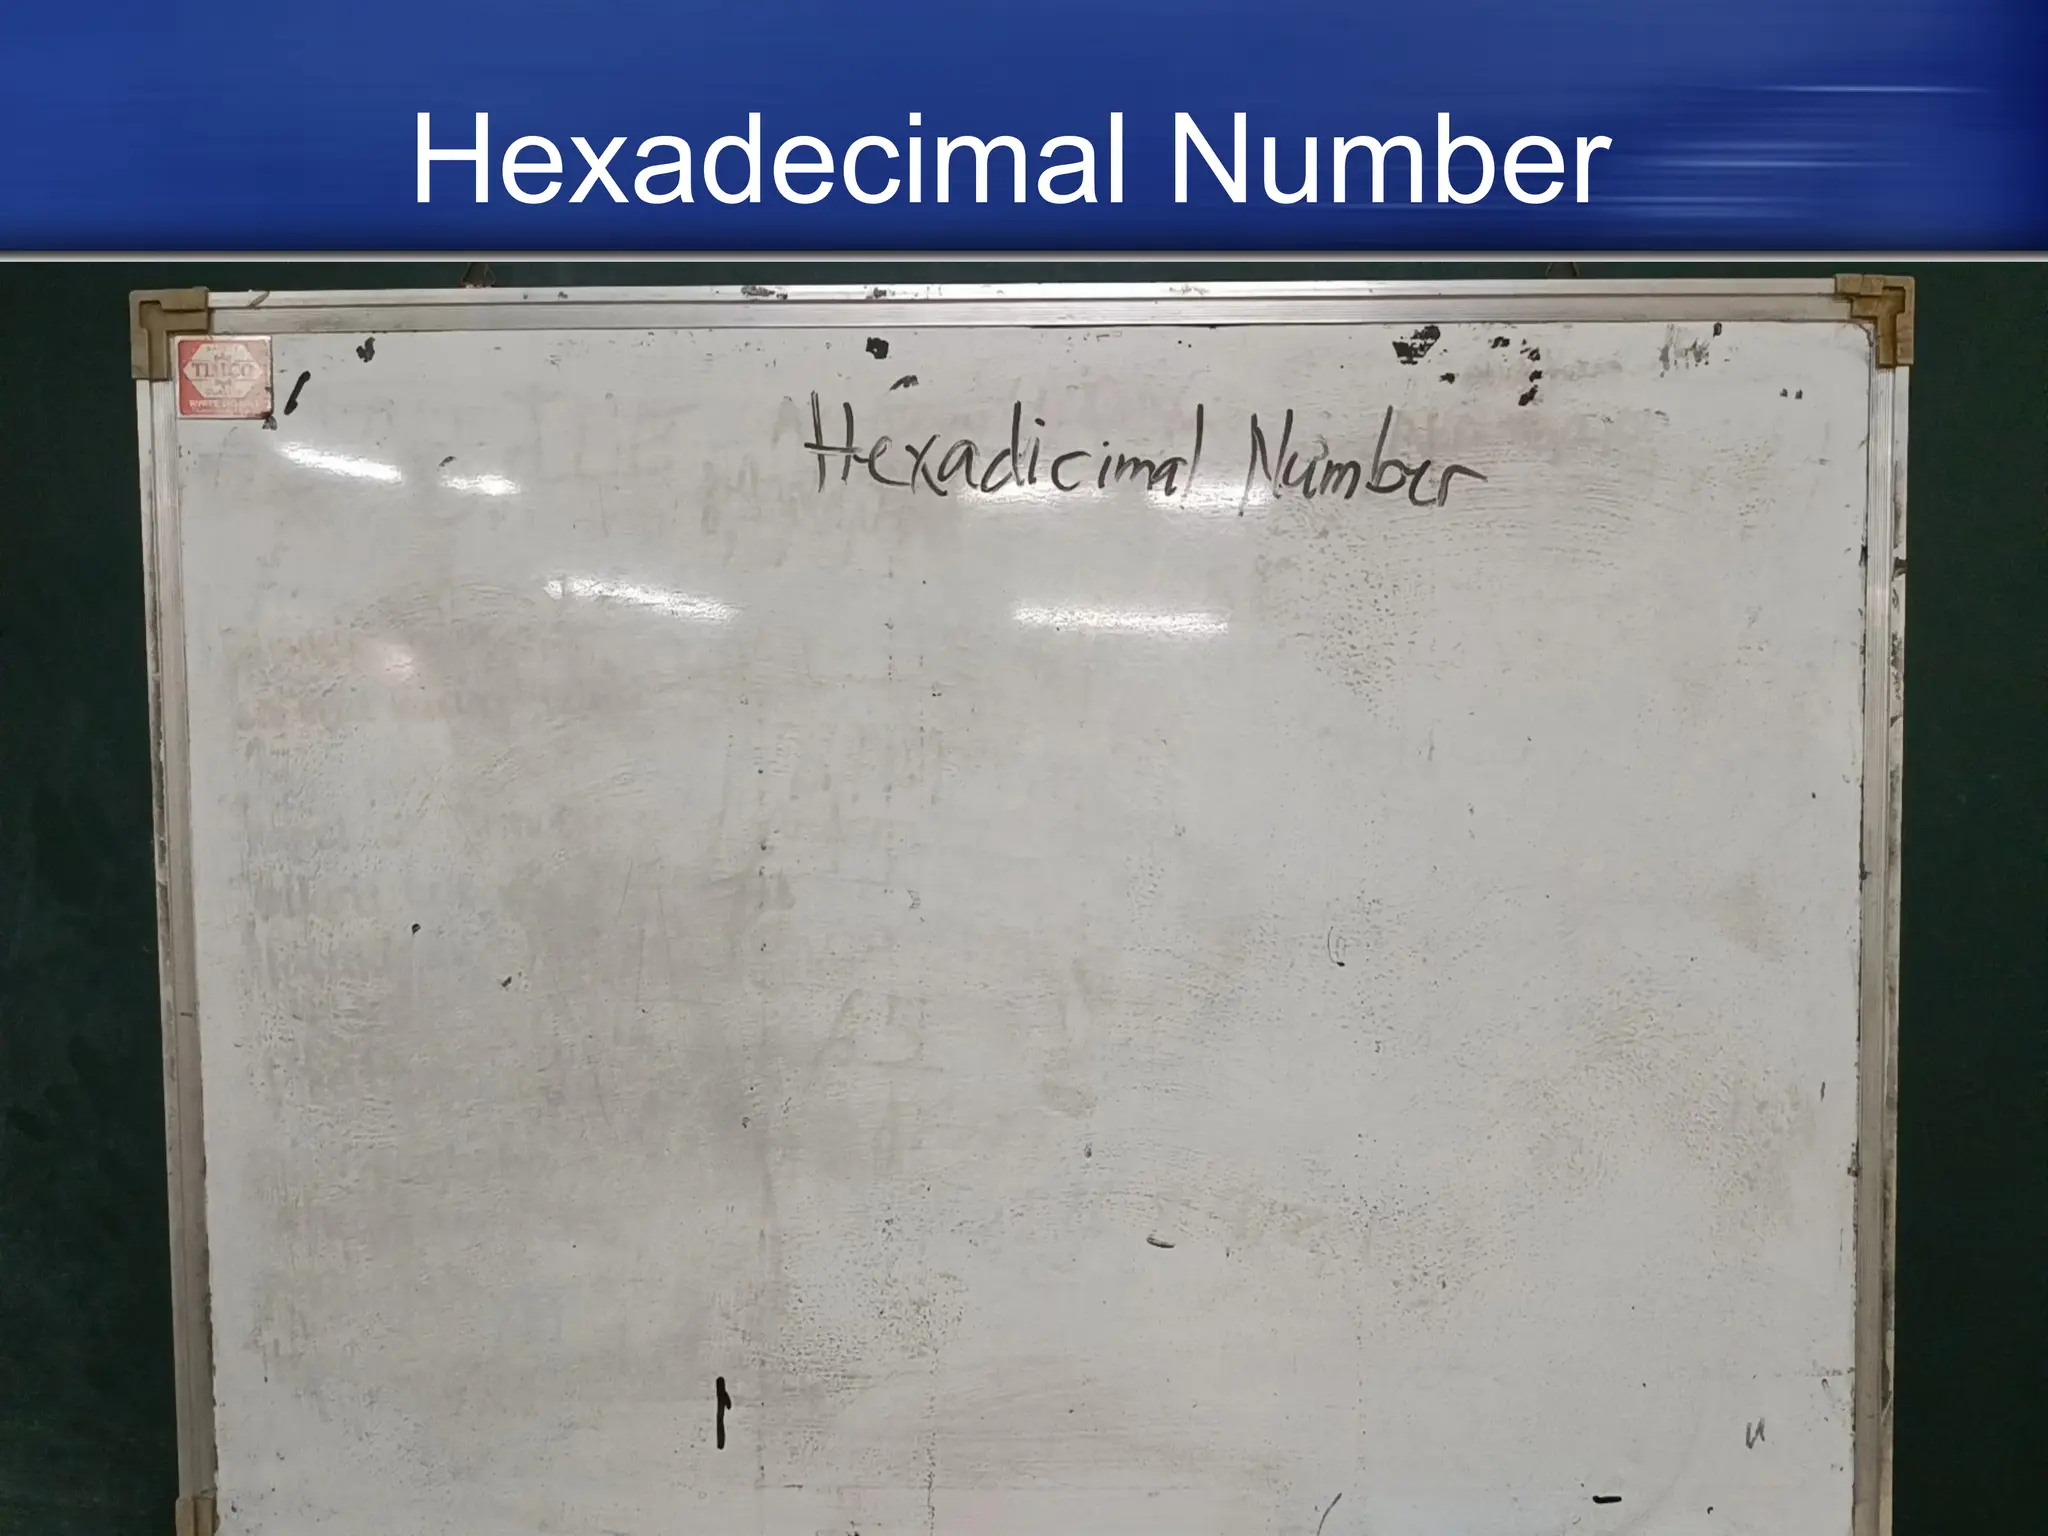 Hexadecimal Number
TIMCO
Hexadicimal Number